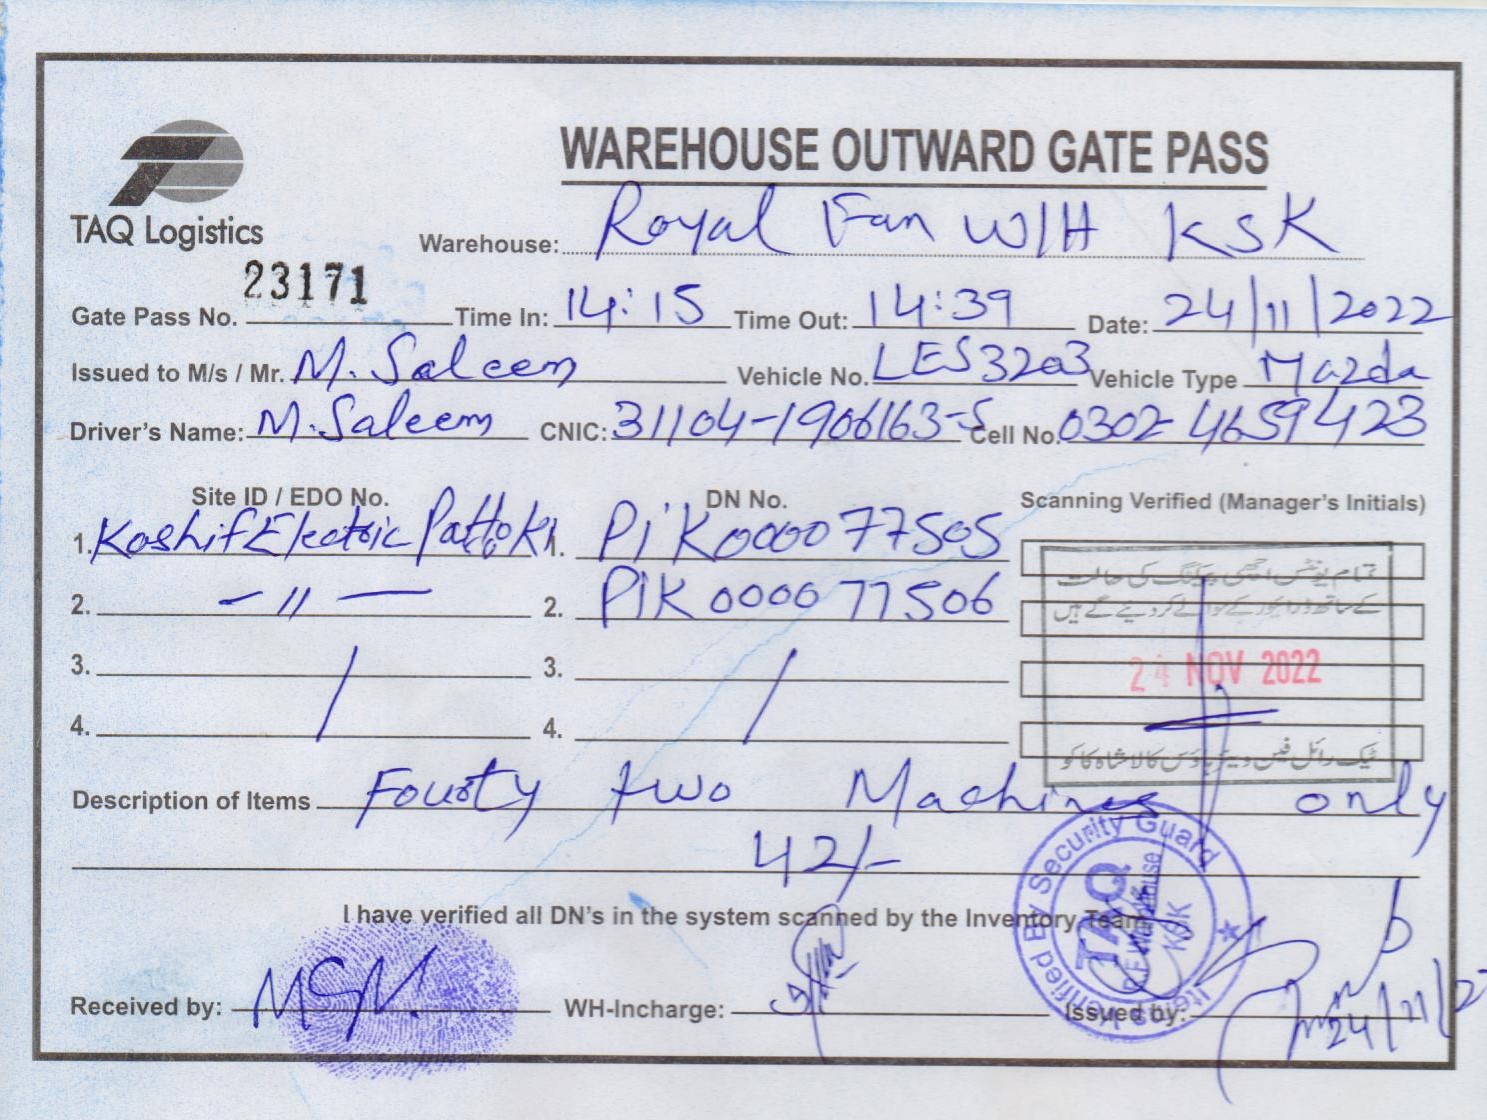 WAREHOUSE OUTWARD GATE PASS
TAQ Logistics
Warehouse: Royal Fan W/H KSK
Gate Pass No. 23171 Time In: 14:15 Time Out: 14:39 Date: 24/11/2022
Issued to M/s / Mr. M. Saleem Vehicle No. LES3203 Vehicle Type Mazda
Driver's Name: M. Saleem CNIC: 31104-1906163-5 Cell No. 0302-4659423
Site ID / EDO No. DN No. Scanning Verified (Manager's Initials)
1. Kashif Electric Pattoki 1. PiK000077505
2. - 11 - 2. PIK000077506
3. 3.
4. 4.
تمام یونٹس اچھی پیکنگ کی حالت
کے ساتھ ڈرائیور کے حوالے کر دیئے گئے ہیں
24 NOV 2022
ٹیک رائل فین ویئر ہاؤس کالا شاہ کاکو
Description of Items Fourty two Machines only
42/-
I have verified all DN's in the system scanned by the Inventory Team
Items Verified By Security Guard
TAQ
R.F Warehouse
KSK
Received by: WH-Incharge: Issued by:
24/11/2